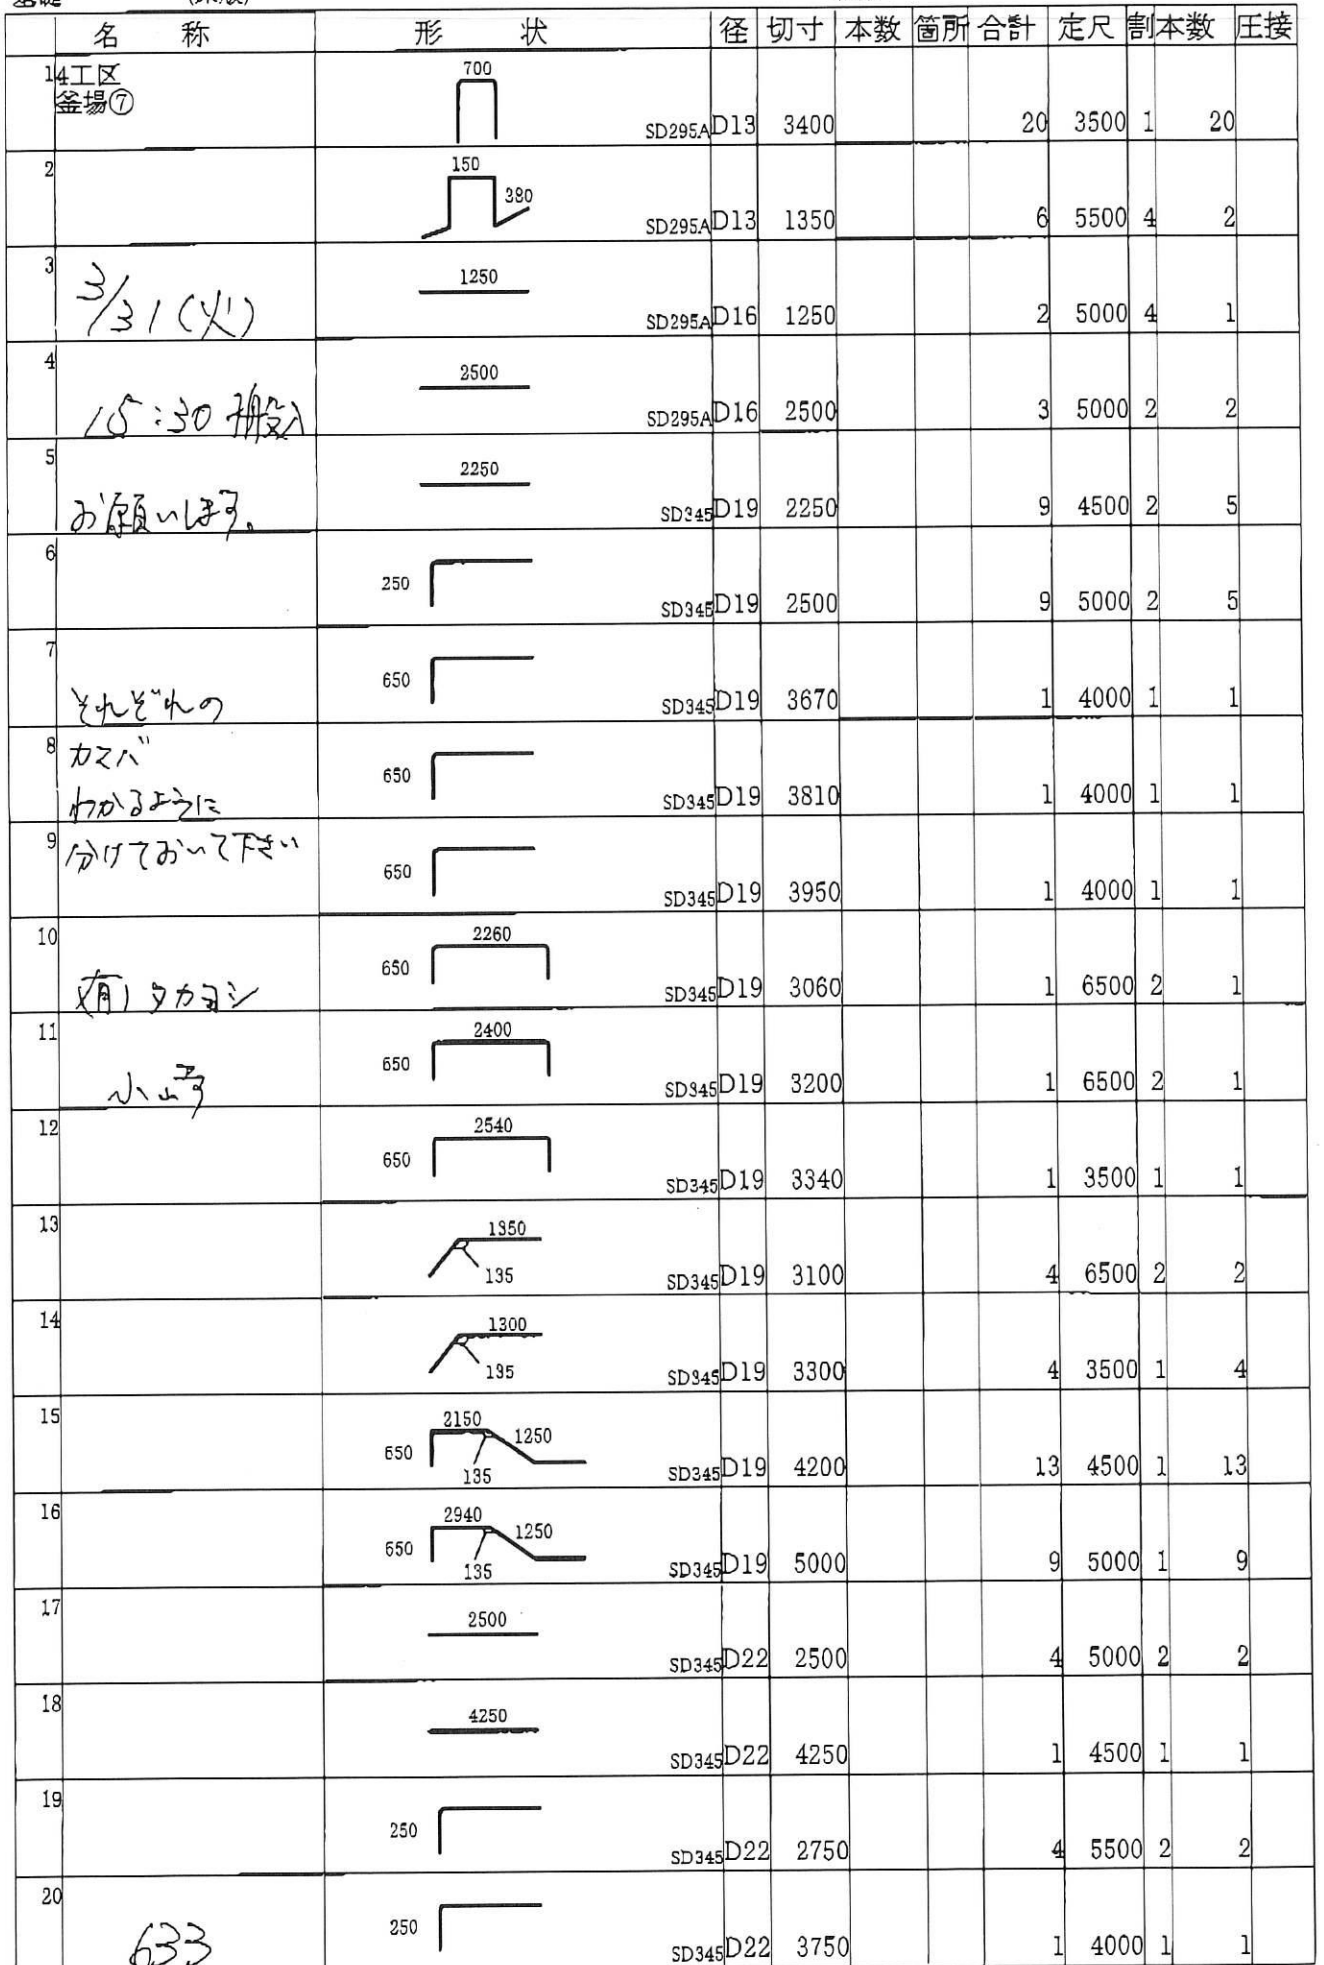 名 称 形 状 径 切寸 本数 箇所 合計 定尺 割 本数 圧接
1 4工区
釜場⑦ 700 SD295A D13 3400 20 3500 1 20
2 150 380 SD295A D13 1350 6 5500 4 2
3 3/31(火) 1250 SD295A D16 1250 2 5000 4 1
4 15:30 搬入 2500 SD295A D16 2500 3 5000 2 2
5 お願いします。 2250 SD345 D19 2250 9 4500 2 5
6 250 SD345 D19 2500 9 5000 2 5
7 それぞれの 650 SD345 D19 3670 1 4000 1 1
8 カマバ
わかるように 650 SD345 D19 3810 1 4000 1 1
9 分けておいて下さい 650 SD345 D19 3950 1 4000 1 1
10 (有)タカヨシ 650 2260 SD345 D19 3060 1 6500 2 1
11 小山奇 650 2400 SD345 D19 3200 1 6500 2 1
12 650 2540 SD345 D19 3340 1 3500 1 1
13 1350 135 SD345 D19 3100 4 6500 2 2
14 1300 135 SD345 D19 3300 4 3500 1 4
15 650 2150 1250 135 SD345 D19 4200 13 4500 1 13
16 650 2940 1250 135 SD345 D19 5000 9 5000 1 9
17 2500 SD345 D22 2500 4 5000 2 2
18 4250 SD345 D22 4250 1 4500 1 1
19 250 SD345 D22 2750 4 5500 2 2
20 633 250 SD345 D22 3750 1 4000 1 1